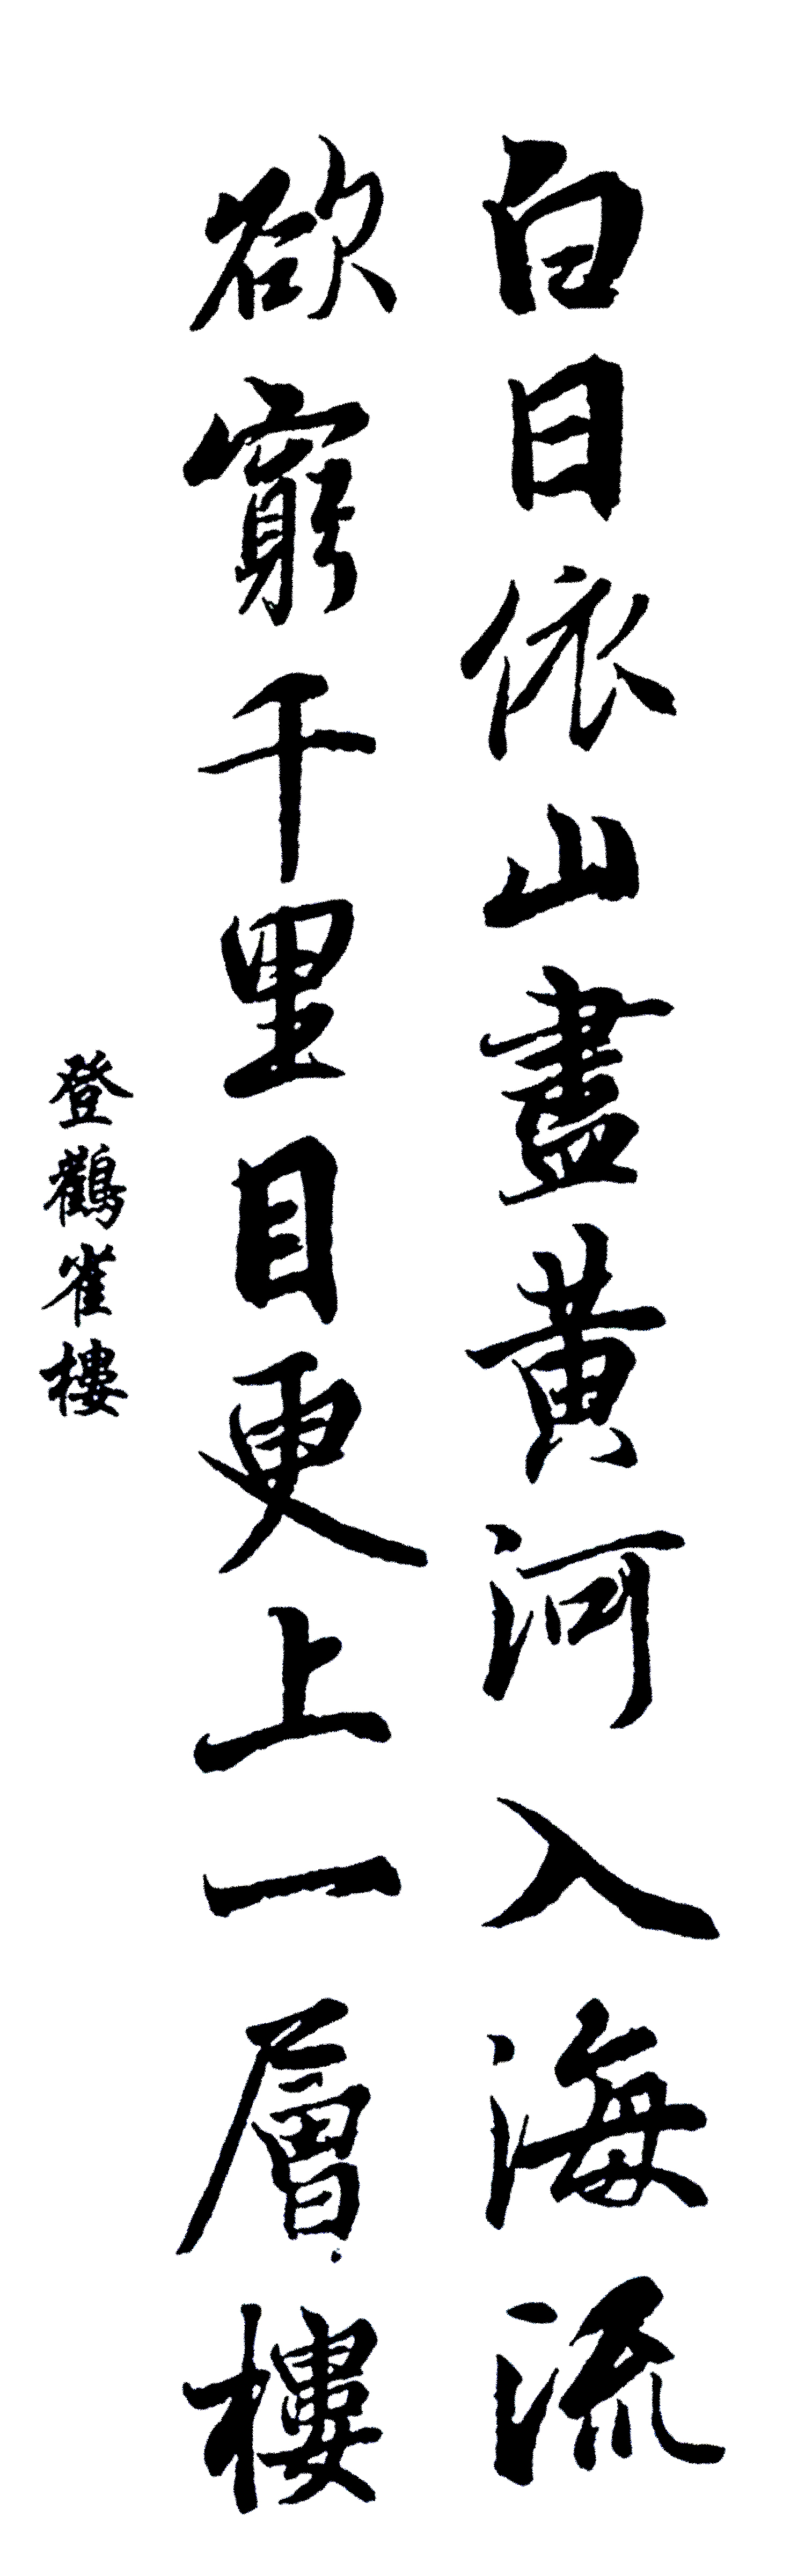 白日依山盡黃河入海流
欲窮千里目更上一層樓
登鸛雀樓